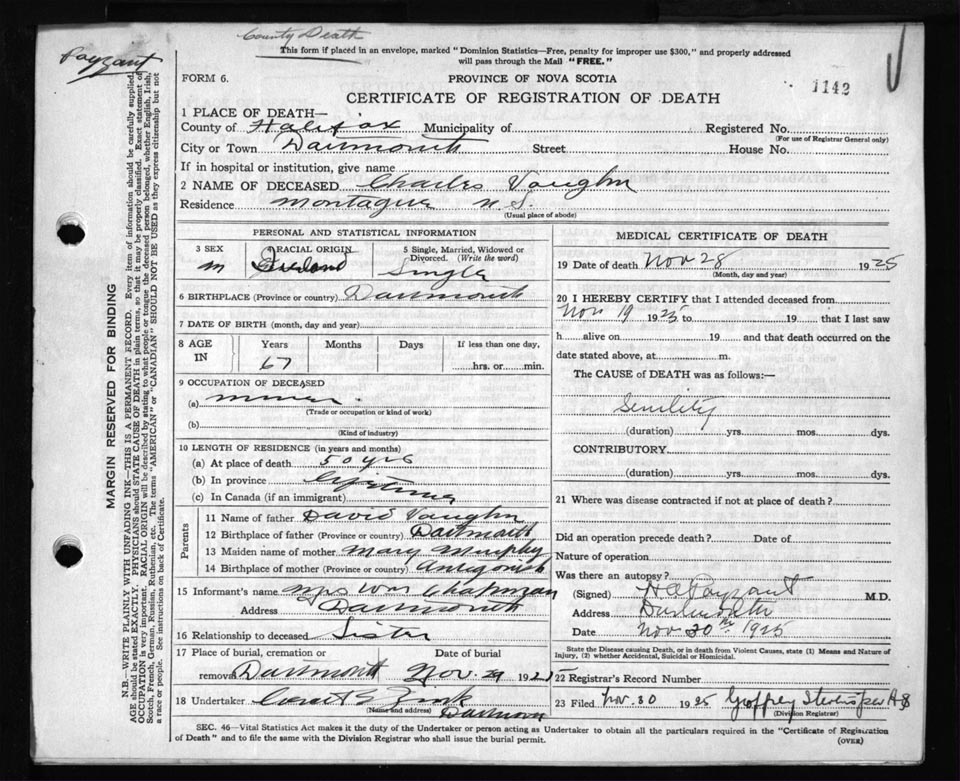 County Death
Payzant
This form if placed in an envelope, marked "Dominion Statistics—Free, penalty for improper use $300," and properly addressed
will pass through the Mail "FREE."
FORM 6.
PROVINCE OF NOVA SCOTIA
1142
CERTIFICATE OF REGISTRATION OF DEATH
1 PLACE OF DEATH—
County of Halifax Municipality of Registered No.
(For use of Registrar General only)
City or Town Dartmouth Street House No.
If in hospital or institution, give name
2 NAME OF DECEASED Charles Vaughn
Residence Montague N.S.
(Usual place of abode)
PERSONAL AND STATISTICAL INFORMATION
3 SEX 4 RACIAL ORIGIN 5 Single, Married, Widowed or
Divorced. (Write the word)
m Ireland Single
6 BIRTHPLACE (Province or country) Dartmouth
7 DATE OF BIRTH (month, day and year)
8 AGE IN Years Months Days If less than one day,
67 hrs. or min.
9 OCCUPATION OF DECEASED
(a) miner
(Trade or occupation or kind of work)
(b)
(Kind of industry)
10 LENGTH OF RESIDENCE (in years and months)
(a) At place of death 50 yrs
(b) In province lifetime
(c) In Canada (if an immigrant)
Parents
11 Name of father David Vaughn
12 Birthplace of father (Province or country) Dartmouth
13 Maiden name of mother Mary Murphy
14 Birthplace of mother (Province or country) Antigonish
15 Informant's name Mrs Wm Chapman
Address Dartmouth
16 Relationship to deceased Sister
17 Place of burial, cremation or Date of burial
removal Dartmouth Nov. 29 192
18 Undertaker Zink
(Name and address)
MEDICAL CERTIFICATE OF DEATH
19 Date of death Nov 28 1925
(Month, day and year)
20 I HEREBY CERTIFY that I attended deceased from
Nov 19 1925 to 19 that I last saw
h alive on 19 and that death occurred on the
date stated above, at m.
The CAUSE of DEATH was as follows:—
Senility
(duration) yrs. mos. dys.
CONTRIBUTORY
(duration) yrs. mos. dys.
21 Where was disease contracted if not at place of death?
Did an operation precede death? Date of
Nature of operation
Was there an autopsy?
(Signed) H A Payzant M.D.
Address Dartmouth
Date Nov 30th 1925
State the Disease causing Death, or in death from Violent Causes, state (1) Means and Nature of
Injury, (2) whether Accidental, Suicidal or Homicidal.
22 Registrar's Record Number
23 Filed Nov. 30 1925 Geoffrey
(Division Registrar)
SEC. 46—Vital Statistics Act makes it the duty of the Undertaker or person acting as Undertaker to obtain all the particulars required in the "Certificate of Registration
of Death" and to file the same with the Division Registrar who shall issue the burial permit.
(OVER)
MARGIN RESERVED FOR BINDING
N.B.—WRITE PLAINLY WITH UNFADING INK—THIS IS A PERMANENT RECORD. Every item of information should be carefully supplied.
AGE should be stated EXACTLY. PHYSICIANS should STATE CAUSE OF DEATH in plain terms, so that it may be properly classified. Exact statement of
OCCUPATION is very important. RACIAL ORIGIN will be described by stating to what people or tongue the deceased person belonged, whether English, Irish,
Scotch, French, German, Russian, Ruthenian, etc. The terms "AMERICAN" or "CANADIAN" SHOULD NOT BE USED as they express citizenship but not
a race or people. See instructions on back of Certificate.